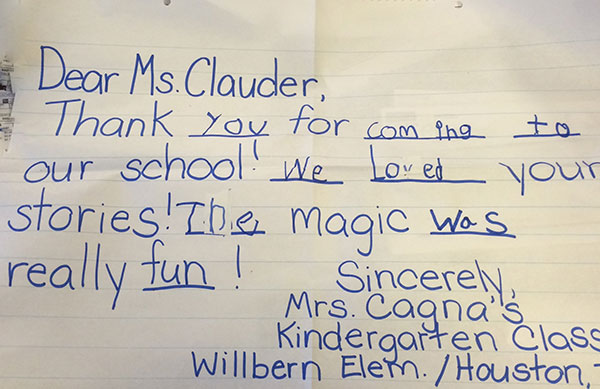 Dear Ms. Clauder,
Thank you for coming to
our school! We Loved your
stories! The magic was
really fun!
Sincerely,
Mrs. Cagna's
Kindergarten Class
Willbern Elem. / Houston,